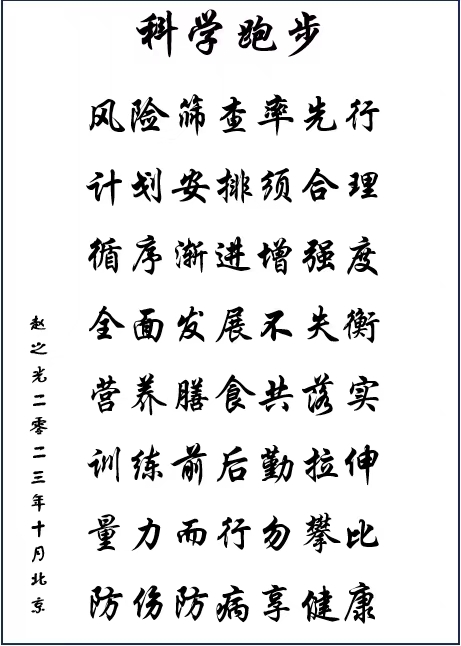 科学跑步
风险筛查率先行
计划安排须合理
循序渐进增强度
全面发展不失衡
营养膳食共落实
训练前后勤拉伸
量力而行勿攀比
防伤防病享健康
赵之光二零二三年十月北京